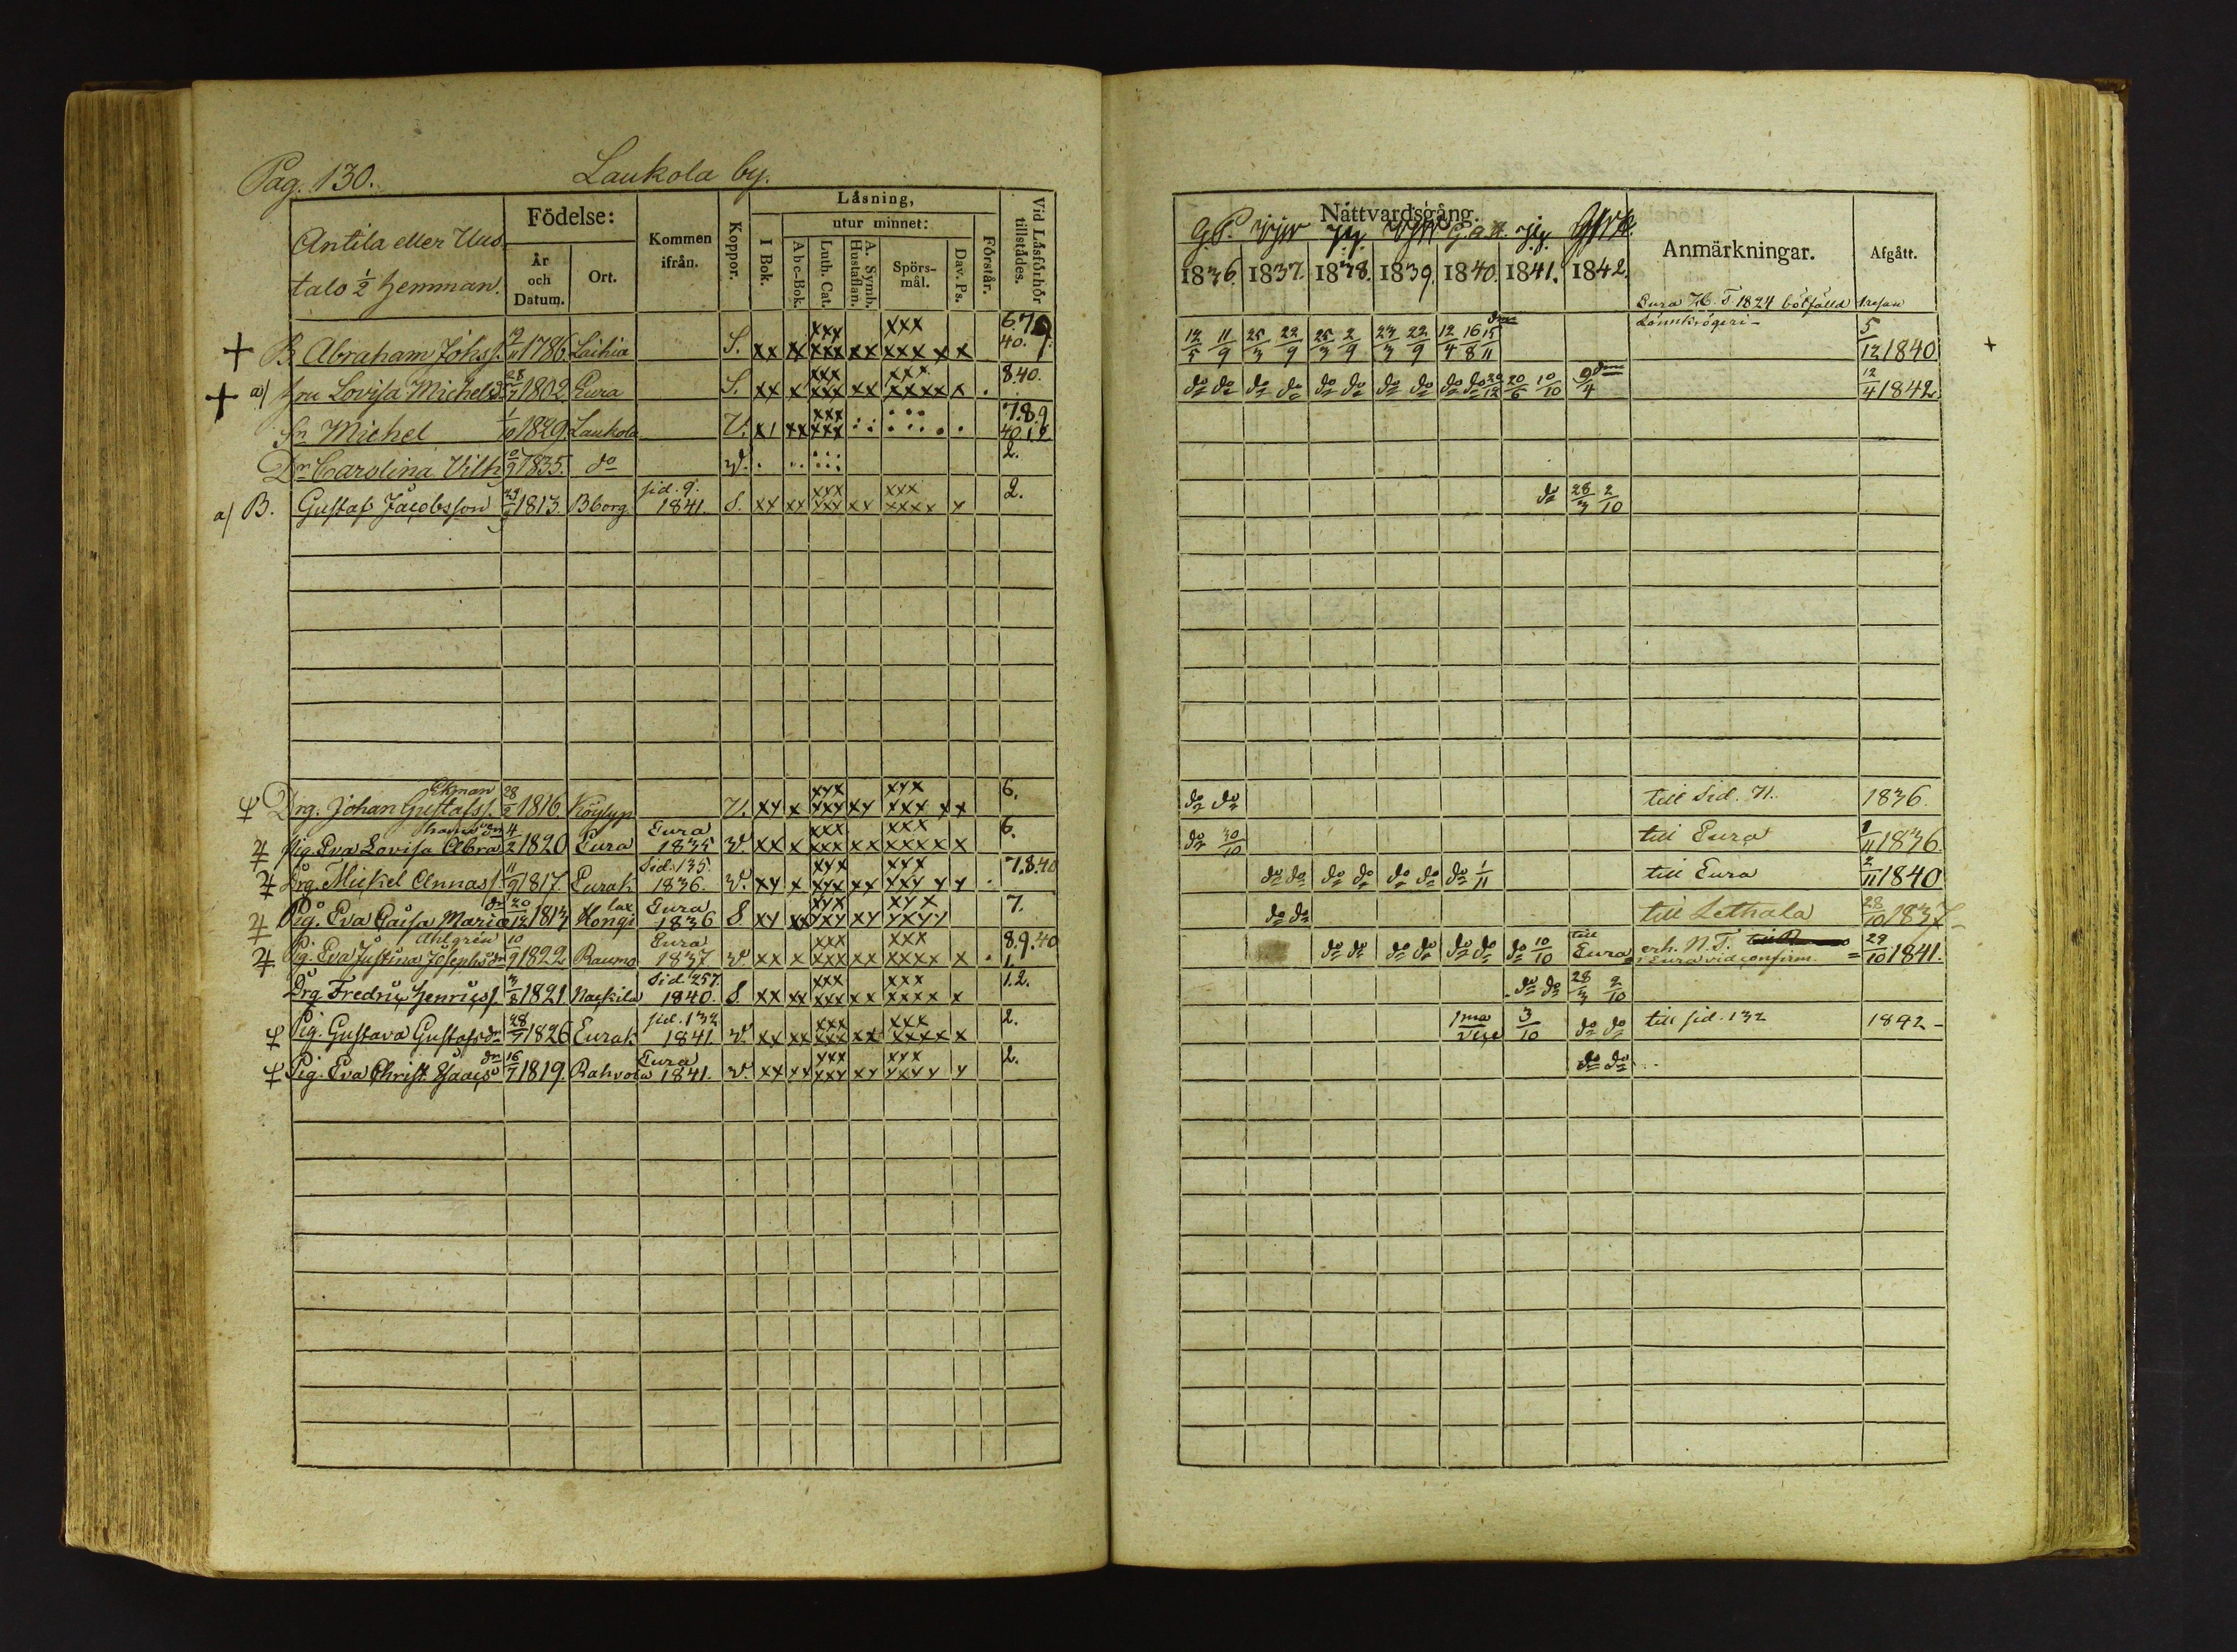 Pag. 130. Laukola by.
Antila eller Uus
talo ½ hemman.
Födelse:
År och Datum.
Ort.
Kommen ifrån.
Koppor.
Läsning,
I Bok.
utur minnet:
Abc-Bok.
Luth. Cat.
A. Symb. Hustaflan.
Spörsmål.
Dav. Ps.
Förstår.
Vid Läsförhör tillstädes.
Nattvardsgång.
1836. 1837. 1838. 1839. 1840. 1841. 1842.
Anmärkningar.
Afgått.
Eura H. T. 1824 bötfälld
Lönnkrögeri
B. Abraham Johss. 1786. Laihia S. xx x xxx xxx xx xxx xxx x x 6.7.9 40. 12/5 11/9 25/3 22/9 25/3 2/9 12/4 16/8 15/11 5/12 1840
a) hru Lovisa Michelsd. 28/7 1802 Eura S. xx x xxx xxx xx xxx xxxx x . 8.40. do do do do do do do do do do 20/6 10/10 9/4 12/4 1842
Sn Michel 1/10 1829. Laukola xx xxx xxx 7.8.9 40.1.2
Dr Carolina Vilh. 1835. do v. 2.
a) B. Gustaf Jacobsson 1813. Bborg sid. 9. 1841. S. xx xx xxx xxx xx xxx xxxx x 2. do 28/3 2/10
Ekman
Drg. Johan Gustafss. 28/2 1816. Köylyp xx x xxx xxx xx xxx xxx x x 6. do do till Sid. 71. 1836.
Pig. Eva Lovisa Abra 4/2 1820 Eura Eura 1835 v. xx x xxx xxx xx xxx xxxx x 6. do 30/10 till Eura 1836.
Drg. Mickel Annass. 11/9 1817. Eurak Sid. 135. 1836. v. xx x xxx xxx xx xxx xxx x x . 7.8.40 do do do do do do do 1/11 till Eura 2/11 1840
Pig. Eva Caisa Maria dr 20/12 1813 Hongi lax Eura 1836 S xx xx xxx xxx xx xxx xxxx 7. do do till Lethala 28/10 1837
Ahlgrén
Pig. Eva Justina Josephsdr 10/9 1822 Raumo Eura 1837 v. xx x xxx xxx xx xxx xxxx x . 8.9.40 1. do do do do do do do 10/10 till Eura erh. N. T. i Eura vid confirm. 29/10 1841.
Drg Fredric Henricss. 3/8 1821 Naskila Sid. 257. 1840. S. xx xx xxx xxx xx xxx xxxx x 1.2. do do 28/3 2/10
Pig. Gustava Gustafsdr 28/7 1826 Eurak sid. 132 1841. v. xx xx xxx xxx xx xxx xxxx x 2. 1ma 3/10 do do till sid. 132 1842
Pig. Eva Christ. Isaacs dr 16/7 1819. Rahvola Eura 1841. v. xx xx xxx xxx xx xxx xxxx x 2. do do